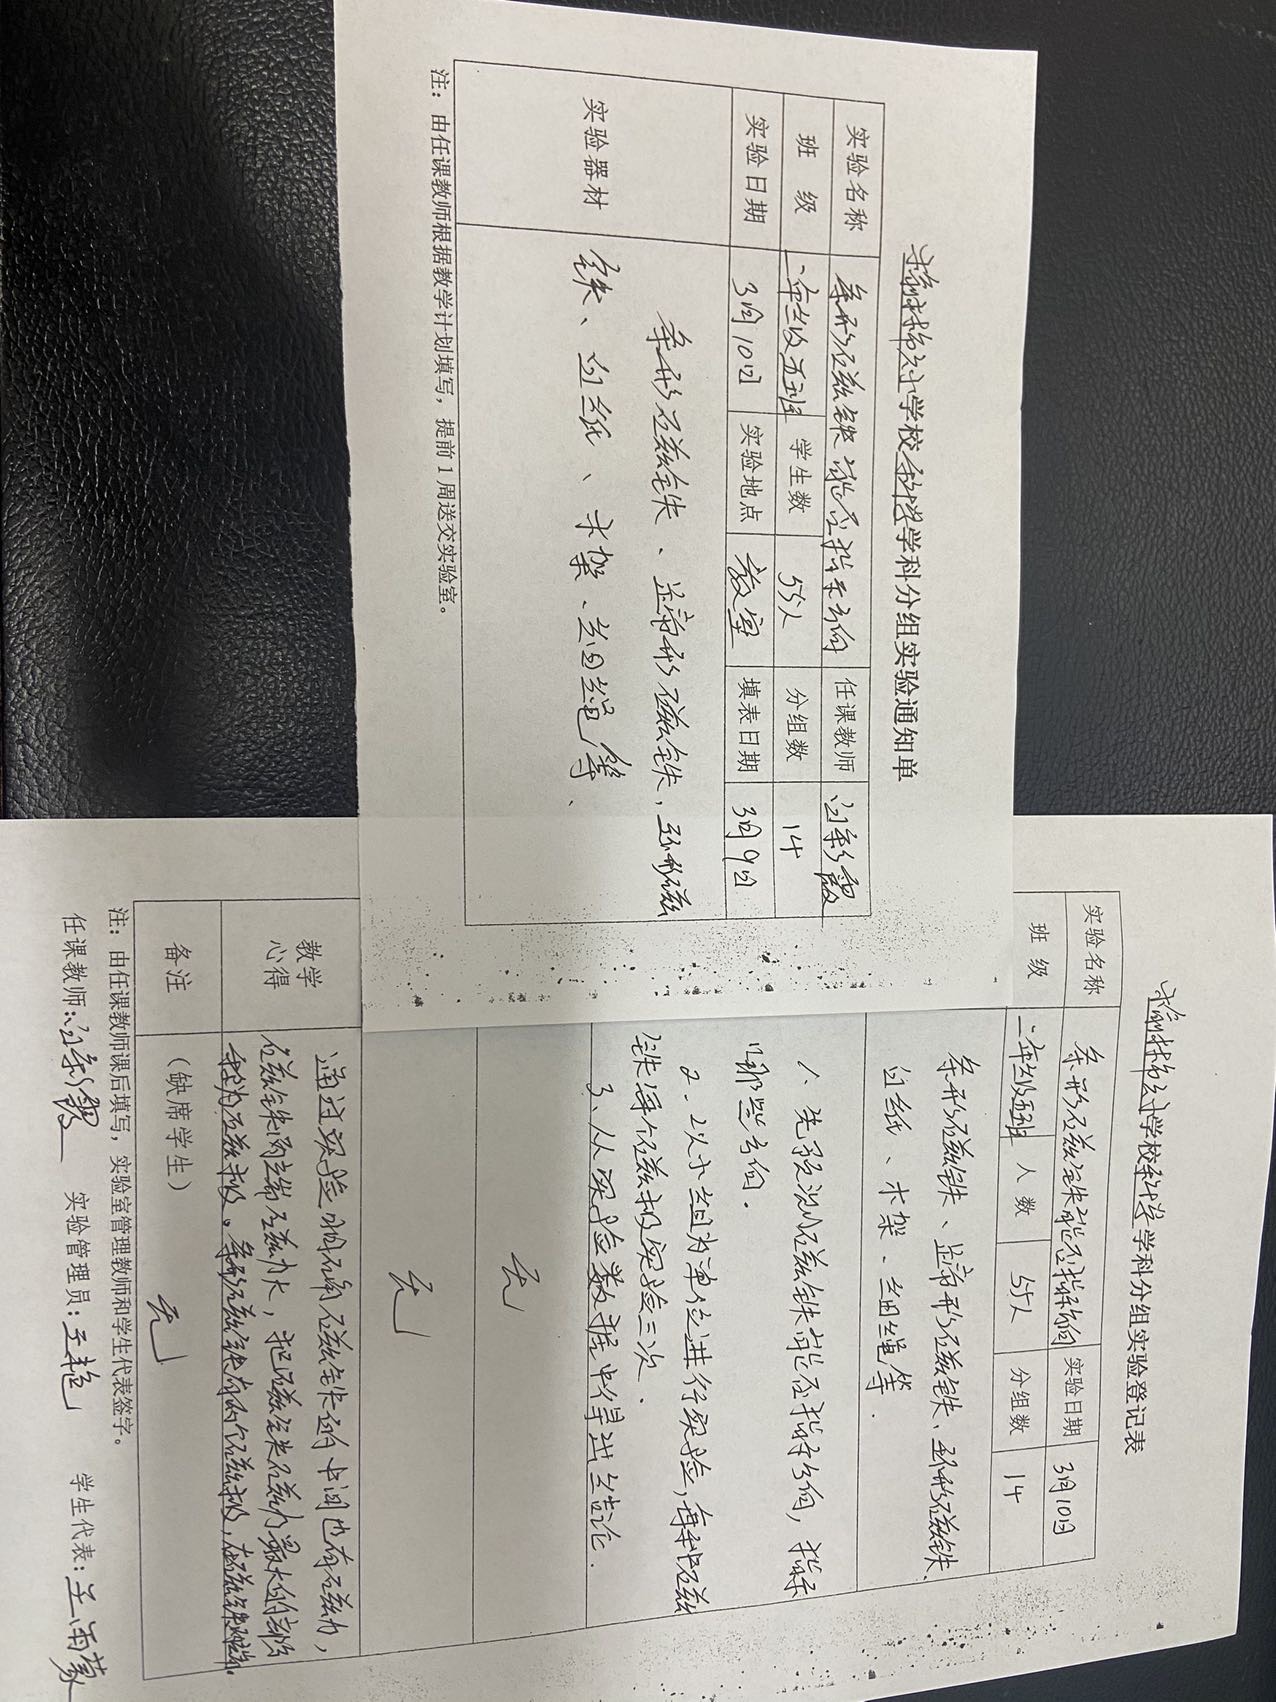 小学校科学学科分组实验通知单
实验名称 条形磁铁能否指示方向 任课教师
班 级 二年级五班 学生数 55人 分组数 14
实验日期 3月10日 实验地点 教室 填表日期 3月9日
实验器材
条形磁铁、蹄形磁铁,环形磁
铁、白纸、木架、细绳等、
注:由任课教师根据教学计划填写,提前1周送交实验室。
小学校科学学科分组实验登记表
实验名称 条形磁铁能否指示方向 实验日期 3月10日
班 级 二年级五班 人 数 55人 分组数 14
条形磁铁、蹄形磁铁、环形磁铁、
白纸、木架、细绳等.
1、先预测磁铁能否指示方向,指示
哪些方向.
2.以小组为单位进行实验,每种磁
铁每个磁极实验三次.
3、从实验数据中得出结论.
无
无
教学
心得
通过实验明确磁铁的中间也有磁力,
磁铁两端磁力大,把磁铁磁力最大的部分
称为磁极。条形磁铁有两个磁极,
备注 (缺席学生) 无
注:由任课教师课后填写,实验室管理教师和学生代表签字。
任课教师: 实验管理员:王艳 学生代表:王雨蒙